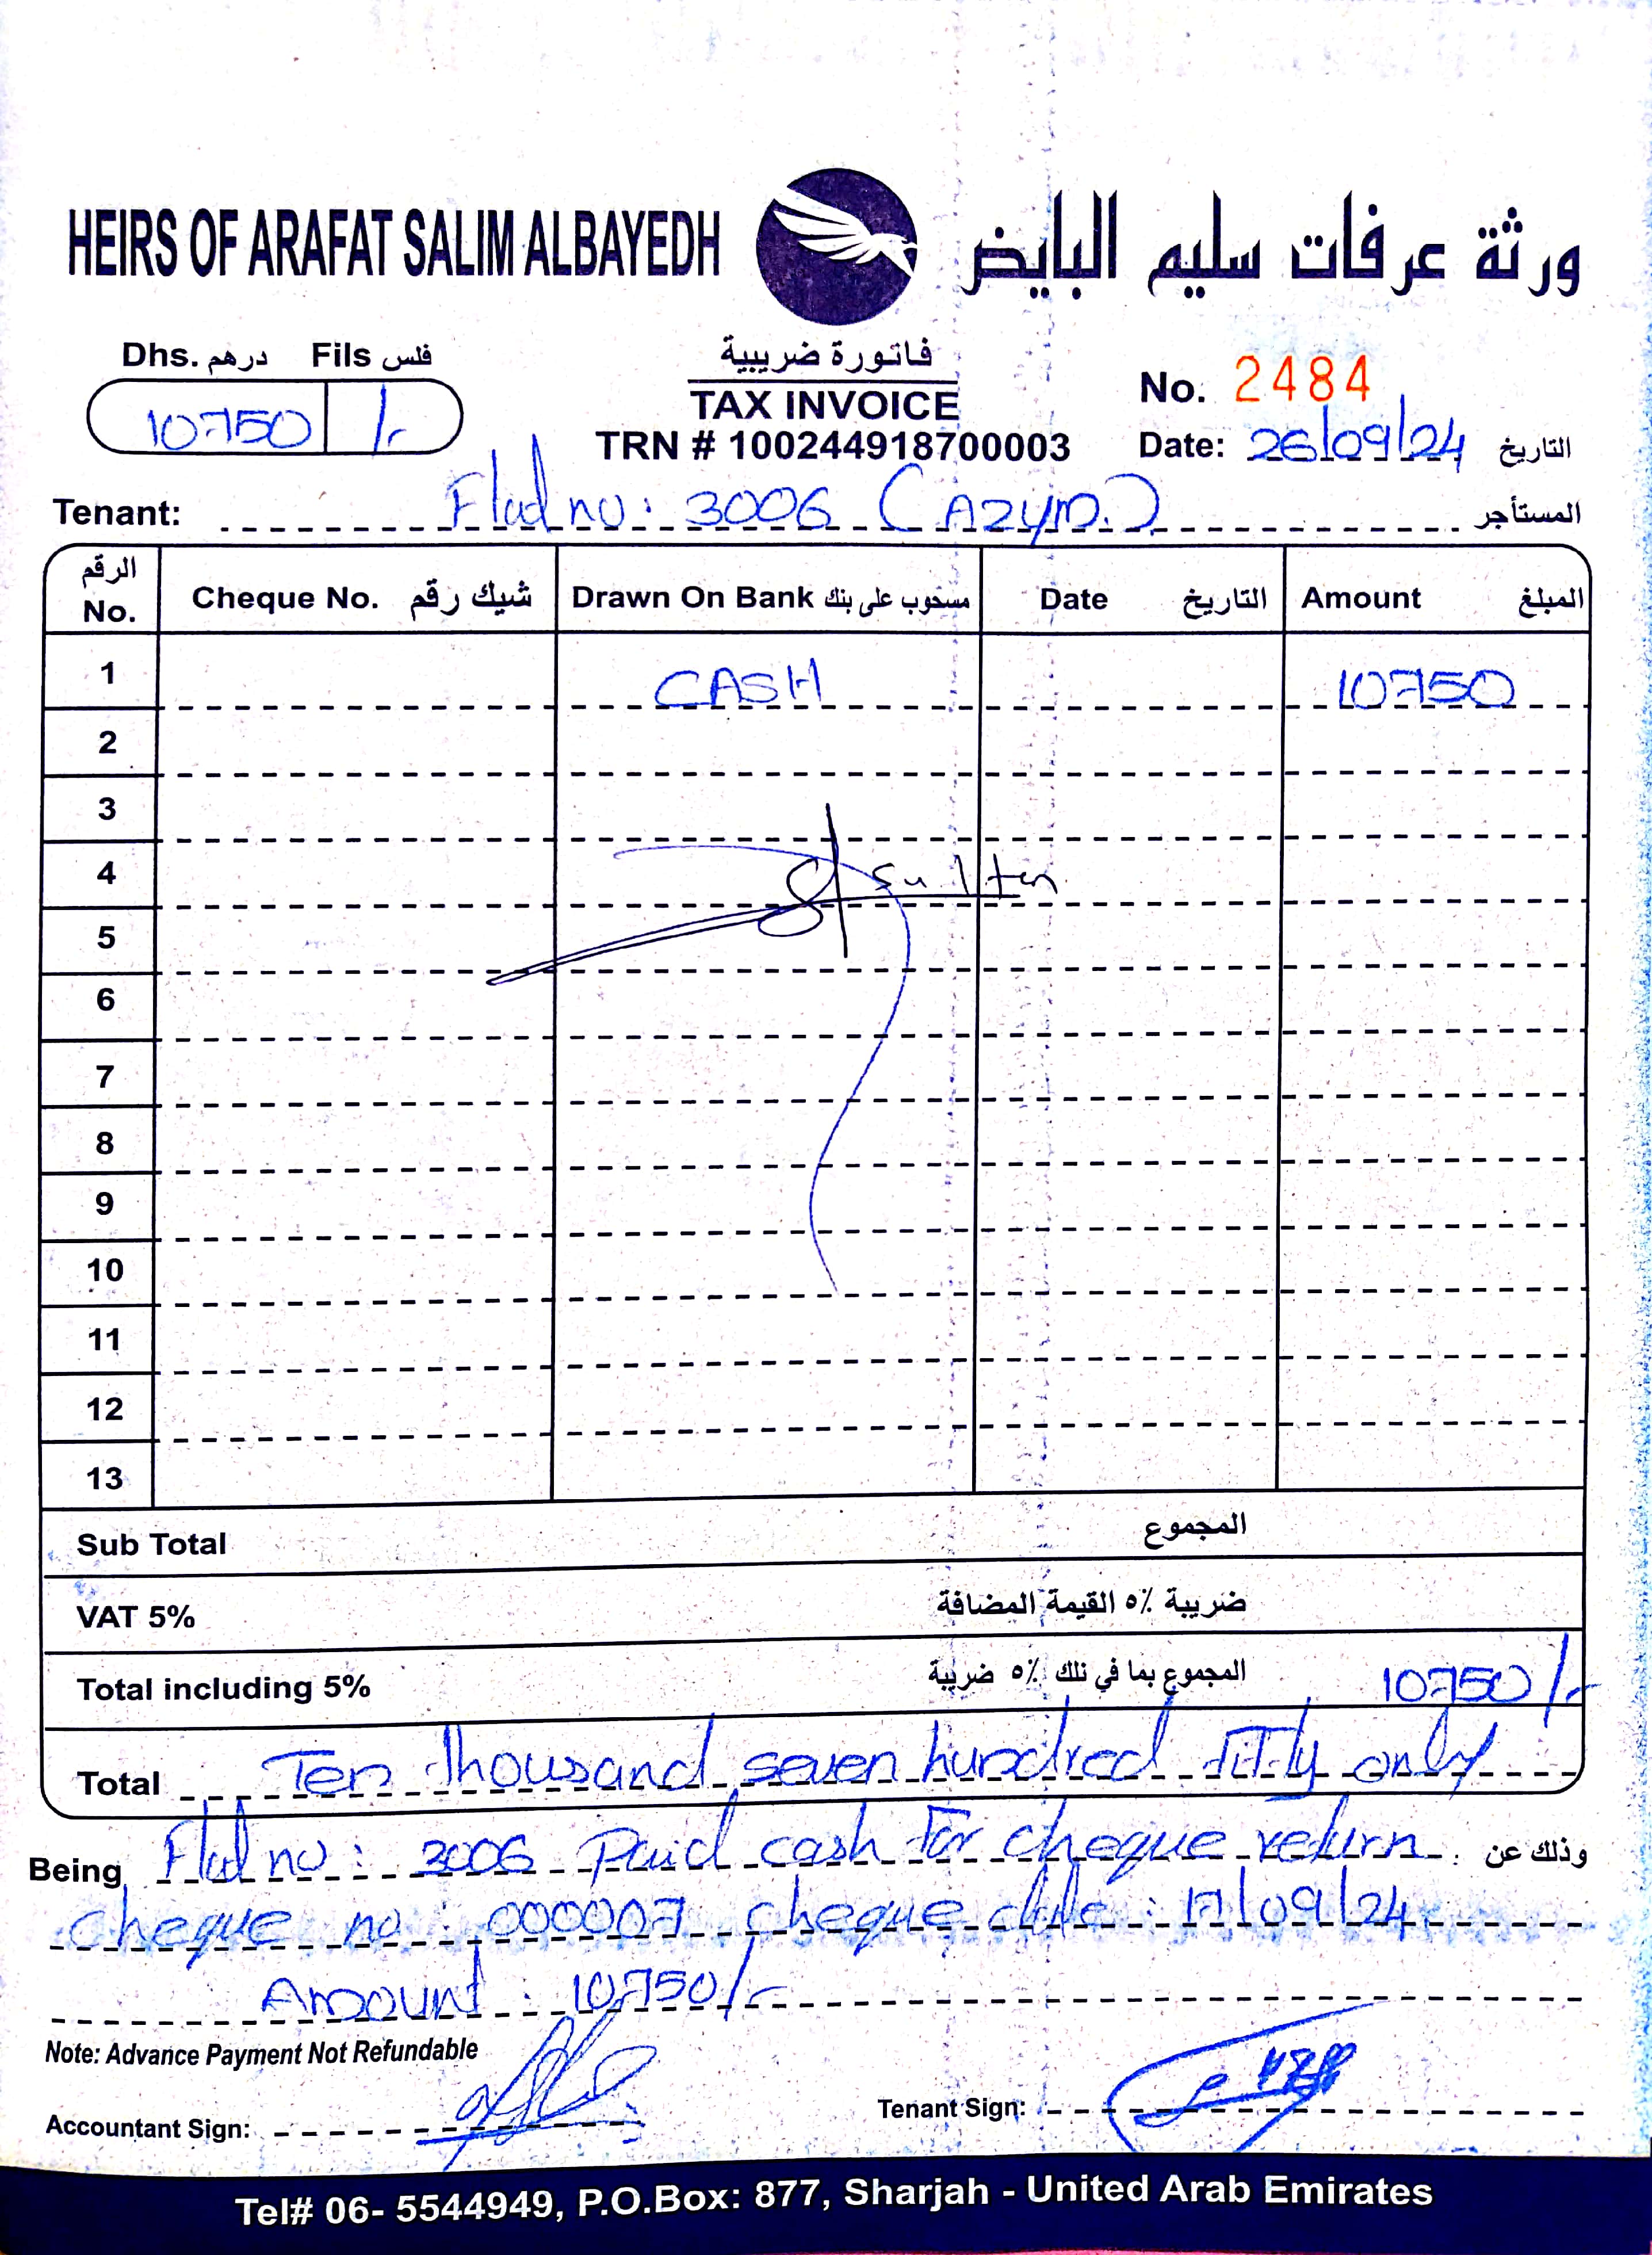 HEIRS OF ARAFAT SALIM ALBAYEDH ورثة عرفات سليم البايض
Dhs. درهم Fils فلس
10750 /-
فاتورة ضريبية
TAX INVOICE
TRN # 100244918700003
No. 2484
Date: 26/09/24 التاريخ
Tenant: Flat no: 3006 (AZYM.) المستأجر
الرقم No. Cheque No. شيك رقم Drawn On Bank مسحوب على بنك Date التاريخ Amount المبلغ
1 CASH 10750
2
3
4 sultan
5
6
7
8
9
10
11
12
13
Sub Total المجموع
VAT 5% ضريبة ٥٪ القيمة المضافة
Total including 5% المجموع بما في ذلك ٥٪ ضريبة 10750/-
Total Ten thousand seven hundred fifty only
Being Flat no: 3006 Paid cash for cheque return. وذلك عن
cheque no: 000007 cheque date: 17/09/24
Amount: 10750/-
Note: Advance Payment Not Refundable
Accountant Sign: Tenant Sign:
Tel# 06- 5544949, P.O.Box: 877, Sharjah - United Arab Emirates